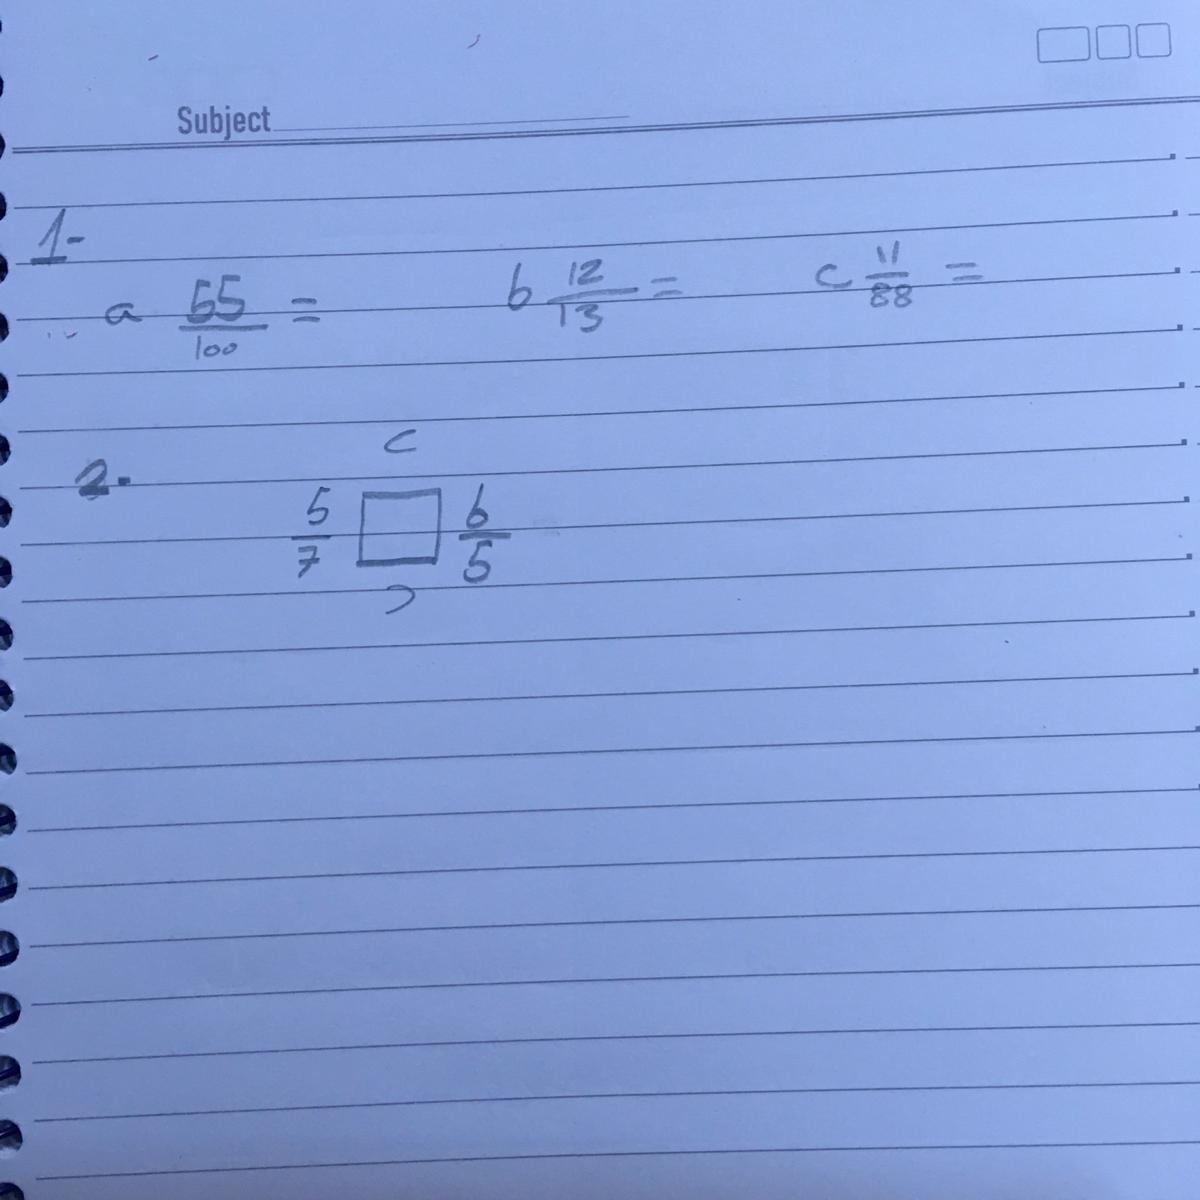 Subject
1-
a 55/100 = b 12/13 = c 11/88 =
2-
<
5/7 □ 6/5
>